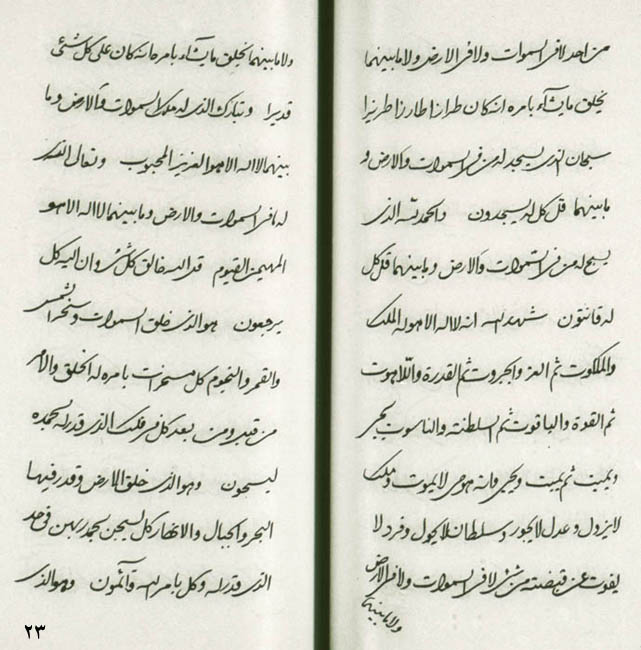 من احد لا فی السموات ولا فی الارض ولا ما بینهما
یخلق ما یشآء بامره انه کان طرازا طارزا طریزا
سبحان الذی یسجد له من فی السموات والارض و
ما بینهما قل کل له یسجدون والحمد لله الذی
یسبح له من فی السموات والارض وما بینهما قل کل
له قانتون شهد الله انه لا اله الا هو له الملک
والملکوت ثم العز والجبروت ثم القدرة واللاهوت
ثم القوة والیاقوت ثم السلطنة والناسوت یحیی
ویمیت ثم یمیت ویحیی وانه هو حی لا یموت وملک
لا یزول وعدل لا یجور وسلطان لا یحول وفرد لا
یفوت عن قبضته من شیئ لا فی السموات ولا فی الارض
ولا ما بینهما
ولا ما بینهما یخلق ما یشآء بامره انه کان علی کل شیئ
قدیرا وتبارک الذی له ملک السموات والارض وما
بینهما لا اله الا هو العزیز المحبوب وتعالی الذی
له ما فی السموات والارض وما بینهما لا اله الا هو
المهیمن القیوم قل الله خالق کل شیئ وان الیه کل
یرجعون هو الذی خلق السموات وسخر الشمس
والقمر والنجوم کل مسخرات بامره له الخلق والامر
من قبل ومن بعد کل فی فلک الذی قدر له بحمده
لیسبحون وهو الذی خلق الارض وقدر فیها
البحر والجبال والانهار کل لیسبحن بحمد ربهن فی حد
الذی قدر له وکل بامر الله قآئمون وهو الذی
۲۳